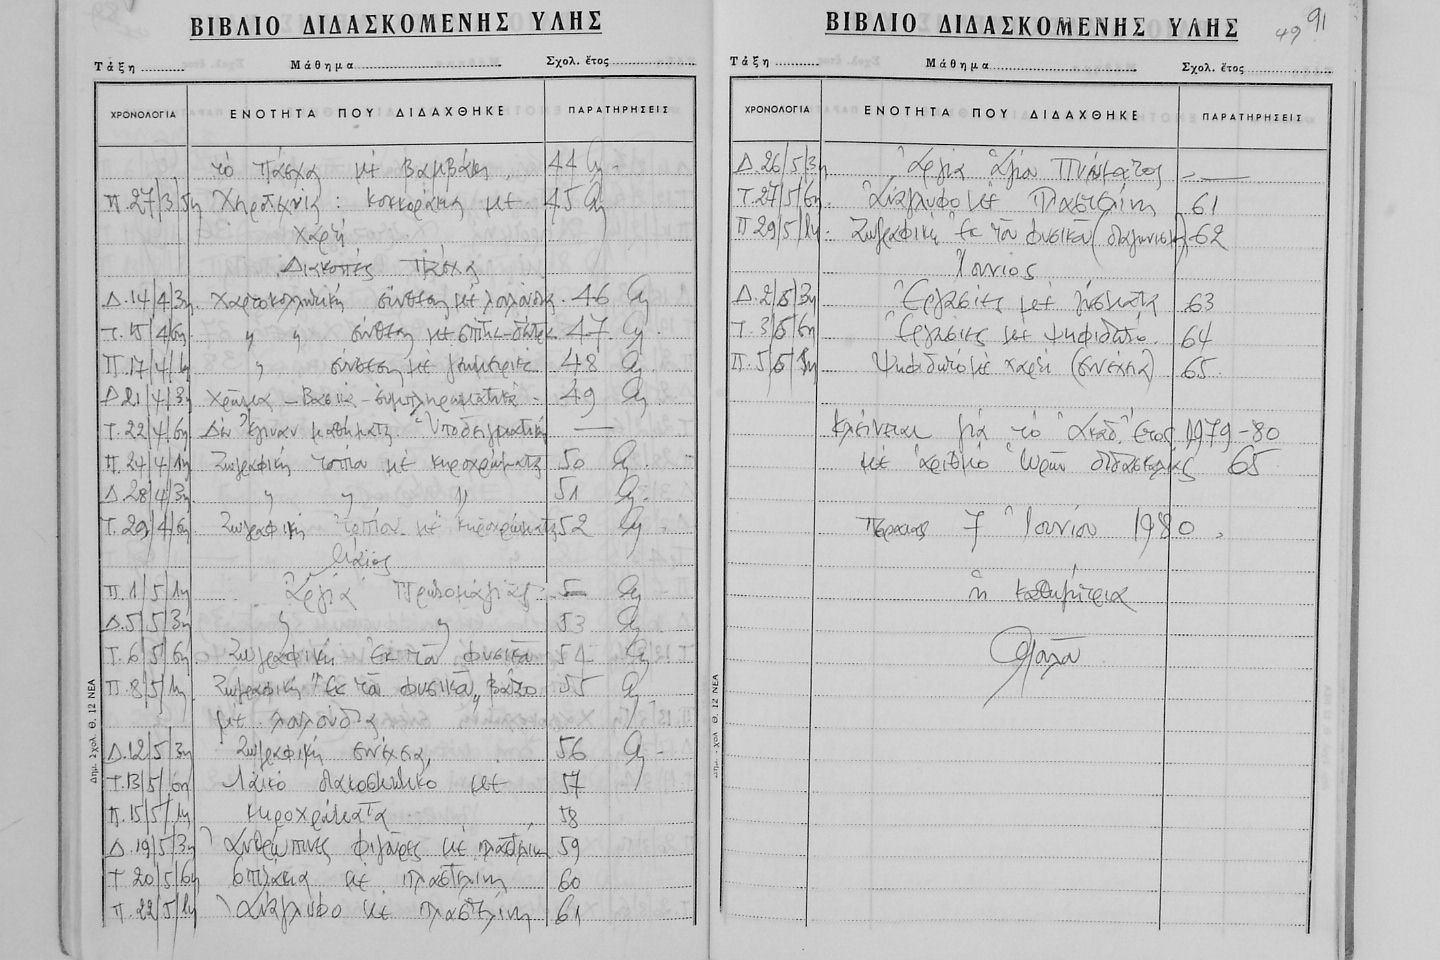 ΒΙΒΛΙΟ ΔΙΔΑΣΚΟΜΕΝΗΣ ΥΛΗΣ
Τάξη Μάθημα Σχολ. ἔτος
ΧΡΟΝΟΛΟΓΙΑ ΕΝΟΤΗΤΑ ΠΟΥ ΔΙΔΑΧΘΗΚΕ ΠΑΡΑΤΗΡΗΣΕΙΣ
τὸ Πάσχα μὲ βαμβάκι, 44
Π. 27/3/5η Χηροτεχνία: κοκκοράκια μὲ 45
χαρτί
Διακοπές Πάσχα
Δ. 14/4/3η Χαρτοκολλητική σύνθεση μὲ λουλούδια. 46
Τ. 15/4/6η " " σύνθεση μὲ σπίτια-δέντρα 47.
Π. 17/4/1η " σύνθεση μὲ γεωμετρικά 48
Δ 21/4/3η Χρῶμα - Βασικά - συμπληρωματικά - 49
Τ. 22/4/6η Δὲν ἔγιναν μαθήματα. Ὑποδειγματική —
Π. 24/4/1η Ζωγραφική τοπίου μὲ κηροχρώματα 50
Δ 28/4/3η " " " 51
Τ. 29/4/6η Ζωγραφική τοπίου μὲ κηροχρώματα 52
Μάϊος
Π. 1/5/1η Ἀργία Πρωτομαγιᾶς. —
Δ. 5/5/3η " " 53
Τ. 6/5/6η Ζωγραφική ἐκ τοῦ φυσικοῦ 54
Π. 8/5/1η Ζωγραφική "ἐκ τοῦ φυσικοῦ" βάζο 55
μὲ λουλούδια
Δ. 12/5/3η Ζωγραφική συνέχεια, 56
Τ. 13/5/6η Λαϊκό διακοσμητικό μὲ 57
Π. 15/5/1η κηροχρώματα 58
Δ. 19/5/3η Ἀνθρώπινες φιγοῦρες μὲ πλαστελίνη 59
Τ 20/5/6η Σπήλαια μὲ πλαστελίνη 60
Π. 22/5/1η Ἀνάγλυφο μὲ πλαστελίνη 61
Δημ. Σχολ. Θ. 12 ΝΕΑ
49 91
ΒΙΒΛΙΟ ΔΙΔΑΣΚΟΜΕΝΗΣ ΥΛΗΣ
Τάξη Μάθημα Σχολ. ἔτος
ΧΡΟΝΟΛΟΓΙΑ ΕΝΟΤΗΤΑ ΠΟΥ ΔΙΔΑΧΘΗΚΕ ΠΑΡΑΤΗΡΗΣΕΙΣ
Δ. 26/5/3η Ἀργία Ἁγίου Πνεύματος —
Τ. 27/5/6η. Ἀνάγλυφο μὲ Πλαστελίνη 61
Π 29/5/1η. Ζωγραφική ἐκ τοῦ φυσικοῦ (διαγωνισμ) 62
Ἰούνιος
Δ. 2/5/3η Ἐργασίες μὲ γύσματα 63
Τ. 3/5/6η Ἐργασίες μὲ ψηφιδωτό. 64
Π. 5/5/1η Ψηφιδωτό μὲ χαρτί (συνέχεια) 65.
Κλείνεται γιά τό Ἀκαδ. Ἔτος 1979-80
μὲ ἀριθμό ὡρῶν διδασκαλίας 65
Πειραιᾶς 7 Ἰουνίου 1980.
ἡ καθηγήτρια
Δημ. Σχολ. Θ. 12 ΝΕΑ